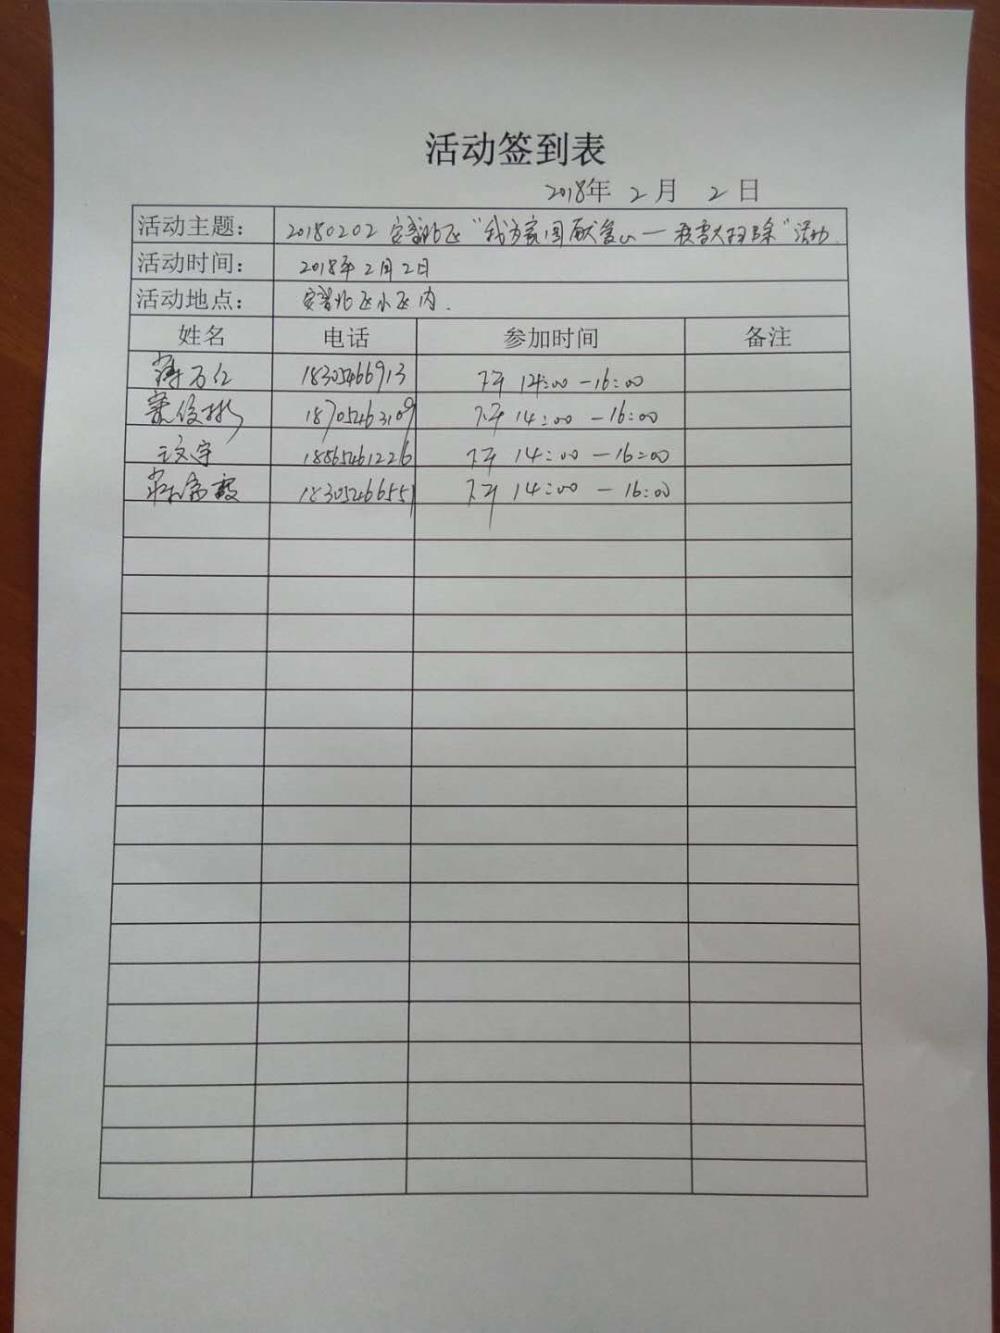 活动签到表
2018年 2月 2日
活动主题: 20180202 安 北区 "我为家园献爱心一 大扫除"活动.
活动时间: 2018年2月2日
活动地点: 安 北区小区内.
姓名 电话 参加时间 备注
万仁 18305466913 下午 14:00 -16:00
俊 18705463109 下午 14:00 -16:00
王文宇 18865461226 下午 14:00 -16:00
18305466551 下午 14:00 -16:00